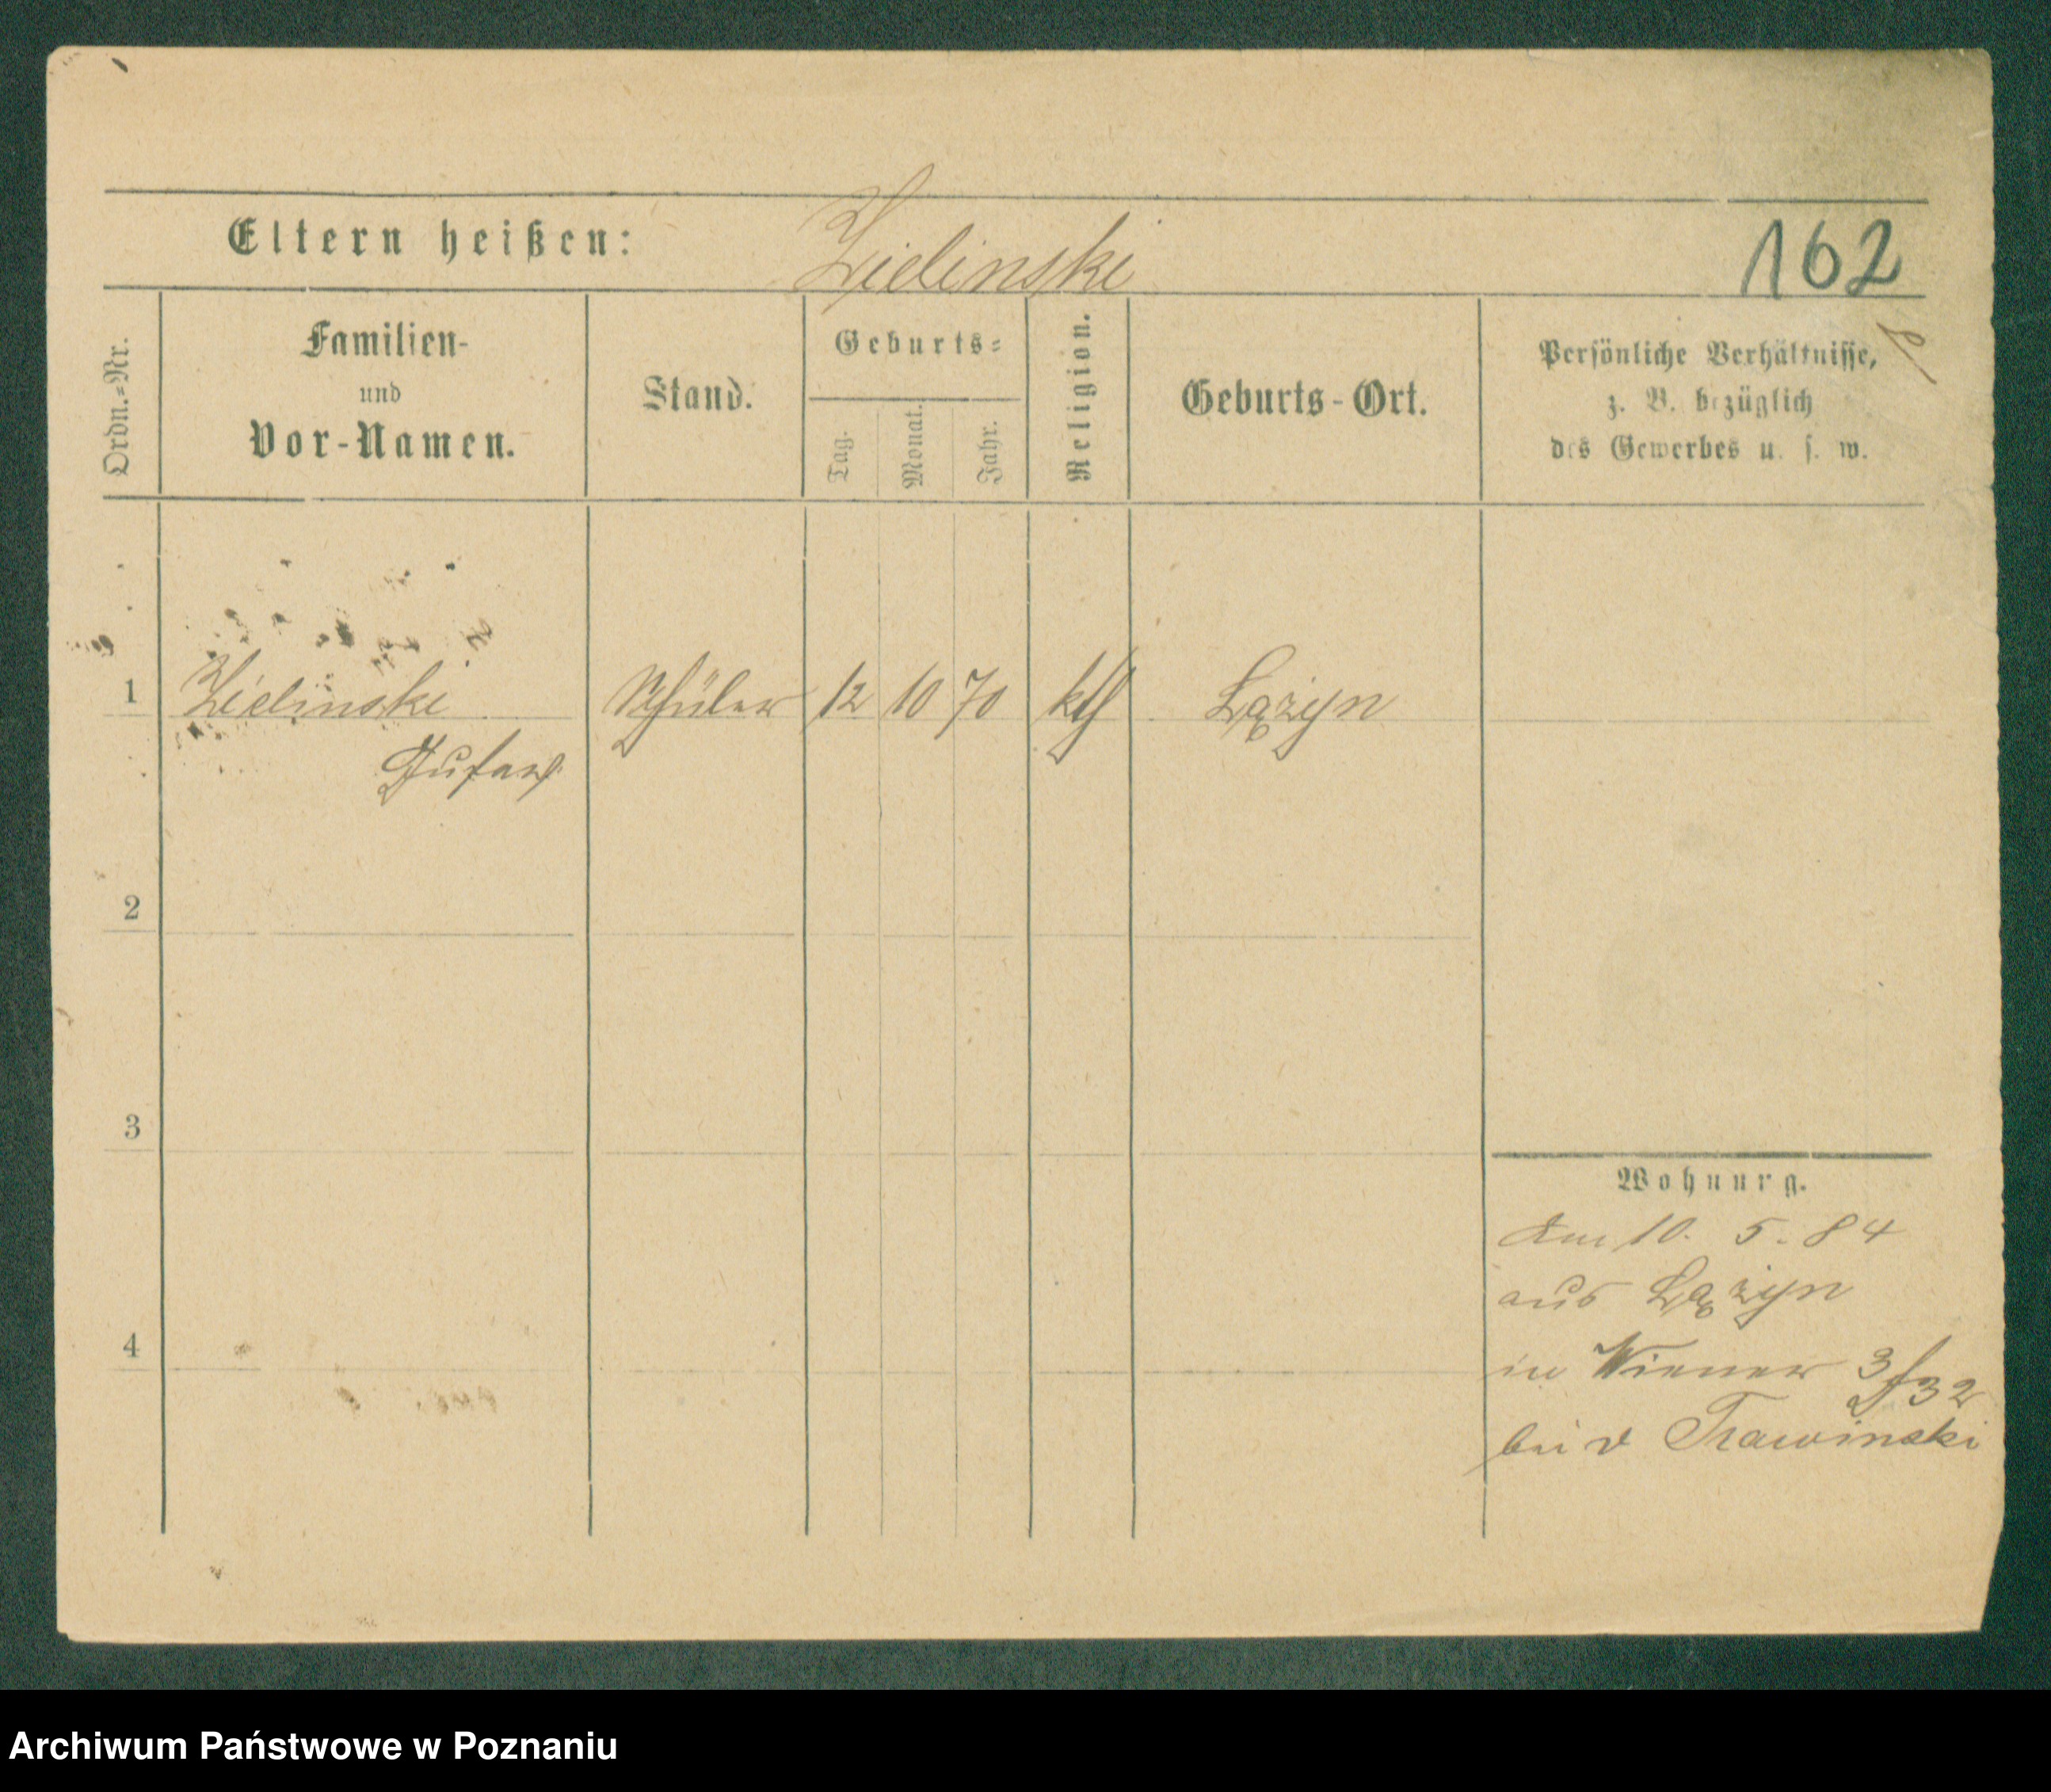 Eltern heißen: Zielinski 162
Ordn.=Nr.
Familien-
und
Vor-Namen.
Stand.
Geburts=
Tag.
Monat.
Jahr.
Religion.
Geburts-Ort.
Persönliche Verhältnisse,
z. B. bezüglich
des Gewerbes u. s. w.
1 Zielinski Schüler 12 10 70 kth Lążyn
2
3
4
Wohnung.
Am 10. 5. 84
aus Lążyn
in Wiener 3/32
bei v Trawinski
Archiwum Państwowe w Poznaniu